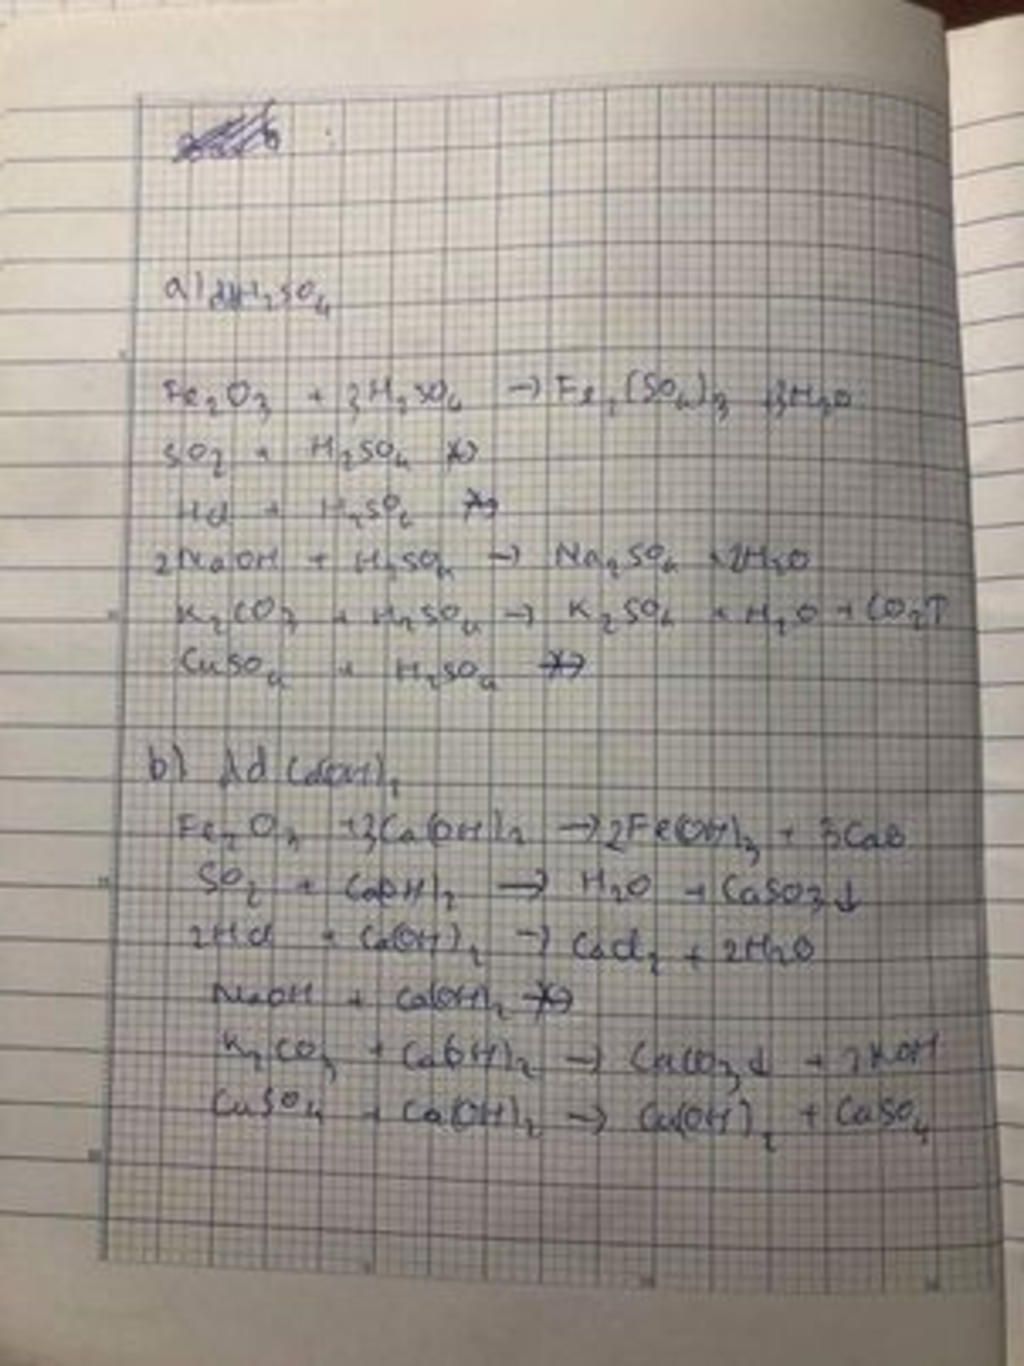 a) dd H₂SO₄
Fe₂O₃ + 3H₂SO₄ → Fe₂(SO₄)₃ + 3H₂O
SO₂ + H₂SO₄ ↛
HCl + H₂SO₄ ↛
2NaOH + H₂SO₄ → Na₂SO₄ + 2H₂O
K₂CO₃ + H₂SO₄ → K₂SO₄ + H₂O + CO₂↑
CuSO₄ + H₂SO₄ ↛
b) dd Ca(OH)₂
Fe₂O₃ + 3Ca(OH)₂ → 2Fe(OH)₃ + 3CaO
SO₂ + Ca(OH)₂ → H₂O + CaSO₃↓
2HCl + Ca(OH)₂ → CaCl₂ + 2H₂O
NaOH + Ca(OH)₂ ↛
K₂CO₃ + Ca(OH)₂ → CaCO₃↓ + 2KOH
CuSO₄ + Ca(OH)₂ → Cu(OH)₂ + CaSO₄